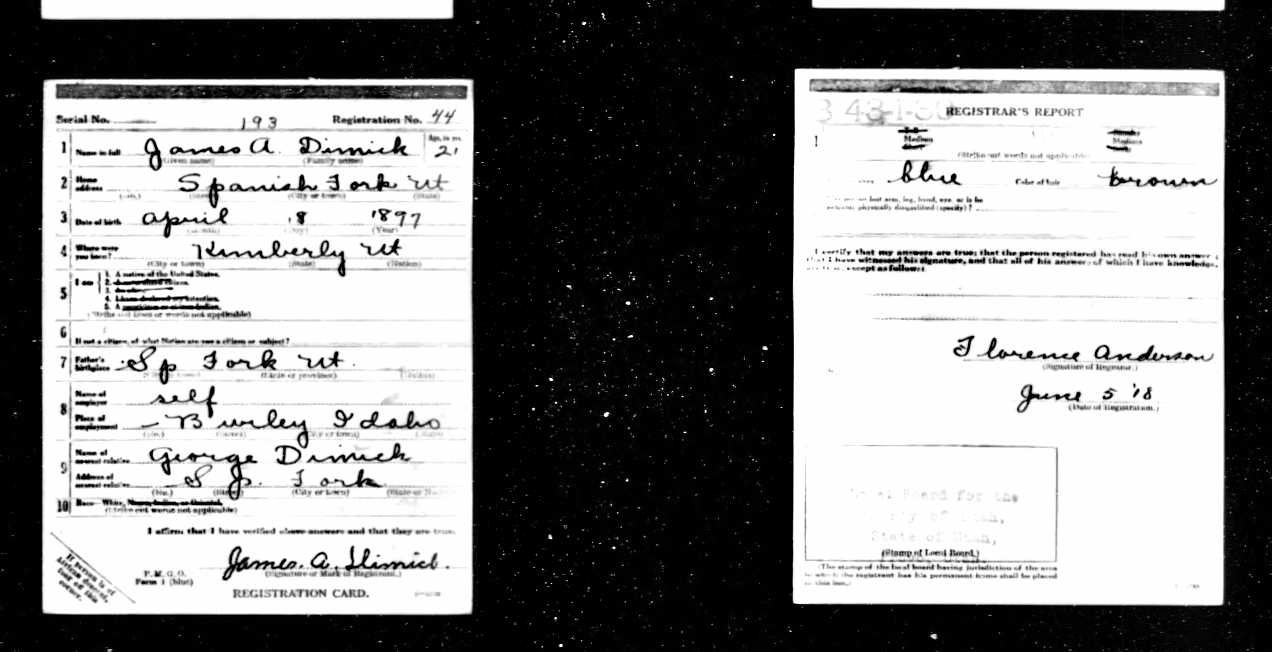 Serial No. 193 Registration No. 44
1 Name in full James A. Dimick Age, in yrs. 21
(Given name) (Family name)
2 Home address Spanish Fork Ut
(No.) (Street) (City or town) (State)
3 Date of birth April 18 1897
(Month) (Day) (Year)
4 Where were you born? Kimberly Ut
(City or town) (State) (Nation)
5 I am
1. A native of the United States.
2. A naturalized citizen.
3. An alien.
4. I have declared my intention.
5. A
(Strike out lines or words not applicable)
6
If not a citizen, of what Nation are you a citizen or subject?
7 Father's birthplace Sp Fork Ut.
(State or province) (Nation)
8 Name of employer self
Place of employment Burley Idaho
(No.) (Street) (City or town) (State)
9 Name of nearest relative George Dimick
Address of nearest relative Sp. Fork
(No.) (Street) (City or town) (State or Nation)
10 Race—White, Negro, Indian, or Oriental.
(Strike out words not applicable)
I affirm that I have verified above answers and that they are true.
James. A. Dimick.
(Signature or Mark of Registrant.)
P. M. G. O.
Form 1 (blue)
REGISTRATION CARD.
If person is of African descent, tear off this corner.
REGISTRAR'S REPORT
1 Tall Medium Short Slender Medium Stout
(Strike out words not applicable)
blue Color of hair brown
lost arm, leg, hand, eye, or is he
physically disqualified (specify)?
I certify that my answers are true; that the person registered has read his own answers;
that I have witnessed his signature, and that all of his answers of which I have knowledge,
are true, except as follows:
Florence Anderson
(Signature of Registrar.)
June 5 '18
(Date of Registration.)
Local Board for the
of Utah,
State of Utah,
(Stamp of Local Board.)
(The stamp of the local board having jurisdiction of the area
in which the registrant has his permanent home shall be placed
in this box.)